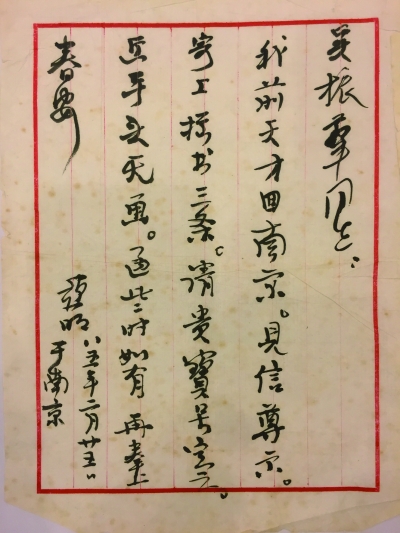 吴振华同志：
我前天才回南京。见信尊示。
寄上拙书三条。请贵宝号定之。
近手头无画。过些时如有 再奉上
春安
亚明
八五年二月廿五日
于南京